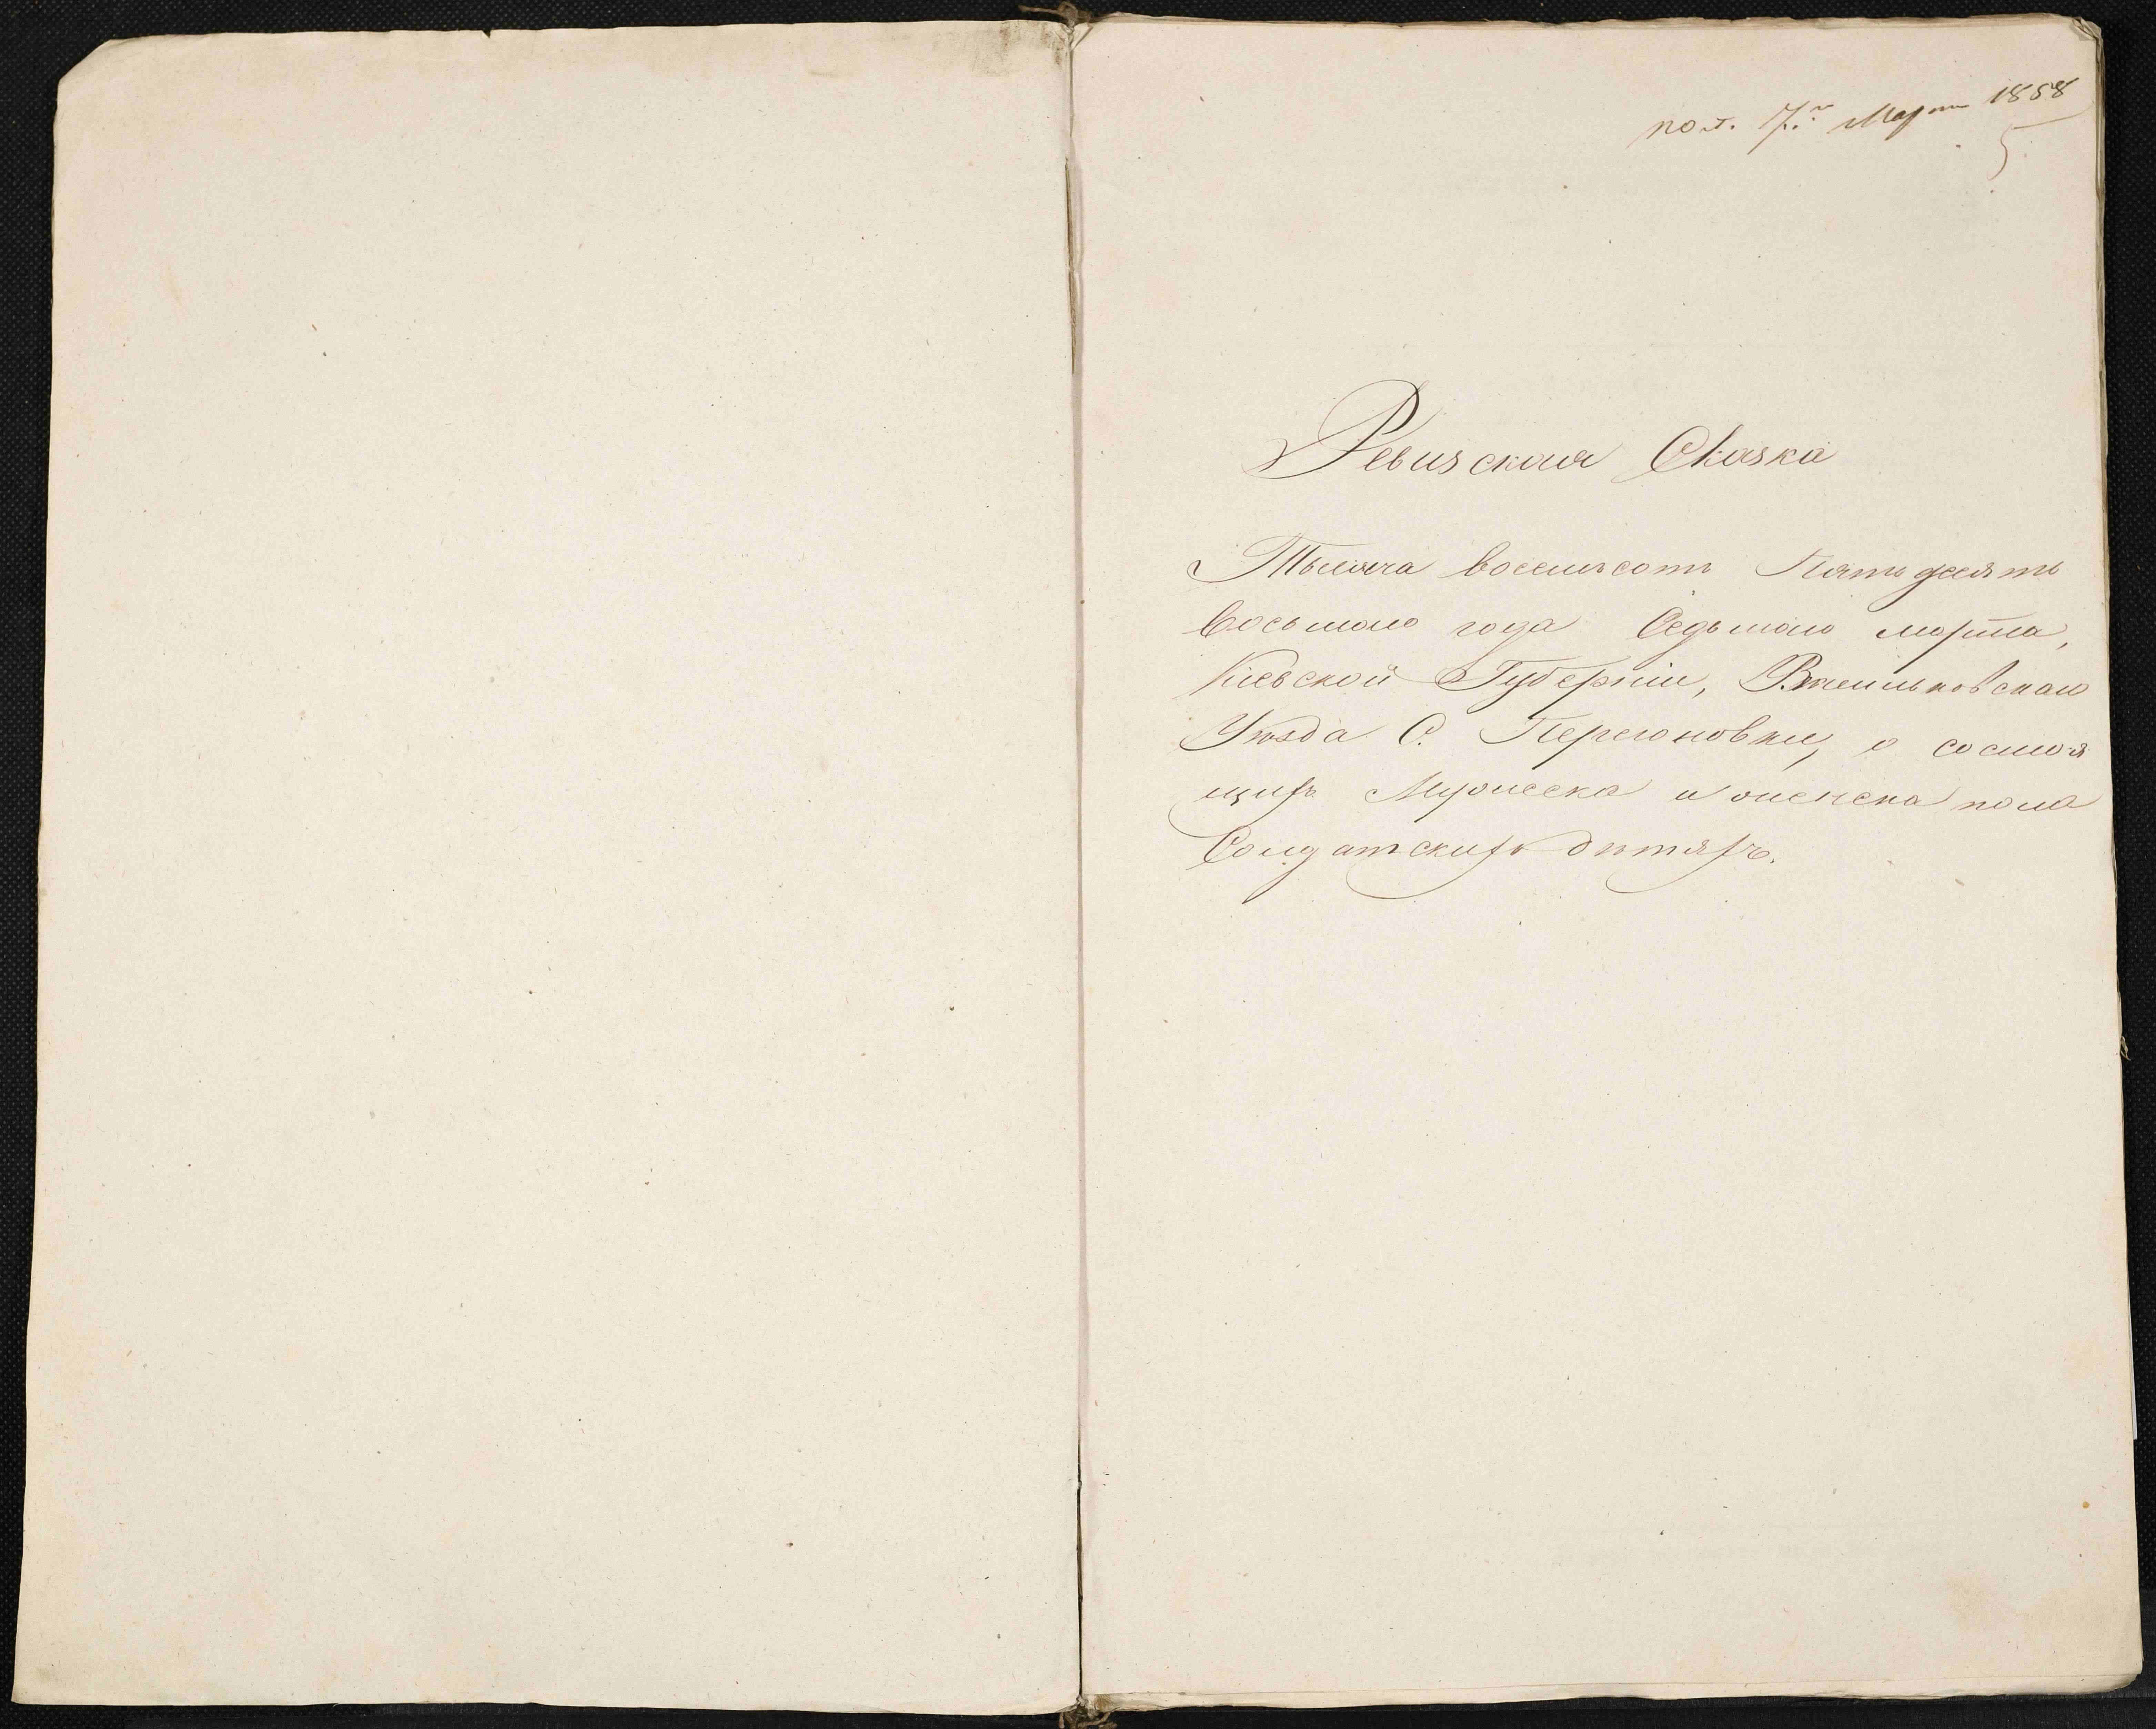 пол. 7го Марта 1858
5.
Ревизская Сказка
Тысяча восемьсотъ Пятьдесятъ
восьмаго года Седьмаго марта,
Кіевской Губерніи, Васильковскаго
Уѣзда С. Перегоновки, о состоя
щихъ Мужеска и женска пола
Солдатскихъ дѣтяхъ.